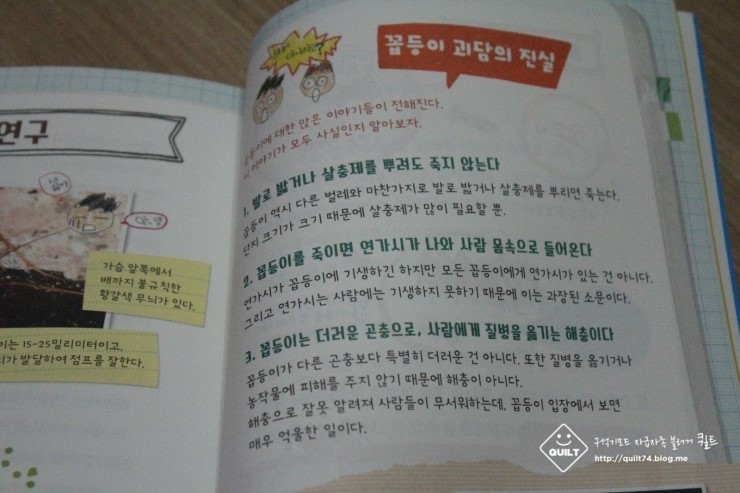 연구
가슴 앞쪽에서
배까지 불규칙한
황갈색 무늬가 있다.
이는 15-25밀리미터이고,
리가 발달하여 점프를 잘한다.
꼽등이 괴담의 진실
꼽등이에 대한 많은 이야기들이 전해진다.
이 이야기가 모두 사실인지 알아보자.
1. 발로 밟거나 살충제를 뿌려도 죽지 않는다
꼽등이 역시 다른 벌레와 마찬가지로 발로 밟거나 살충제를 뿌리면 죽는다.
단지 크기가 크기 때문에 살충제가 많이 필요할 뿐.
2. 꼽등이를 죽이면 연가시가 나와 사람 몸속으로 들어온다
연가시가 꼽등이에 기생하긴 하지만 모든 꼽등이에게 연가시가 있는 건 아니다.
그리고 연가시는 사람에는 기생하지 못하기 때문에 이는 과장된 소문이다.
3. 꼽등이는 더러운 곤충으로, 사람에게 질병을 옮기는 해충이다
꼽등이가 다른 곤충보다 특별히 더러운 건 아니다. 또한 질병을 옮기거나
농작물에 피해를 주지 않기 때문에 해충이 아니다.
해충으로 잘못 알려져 사람들이 무서워하는데, 꼽등이 입장에서 보면
매우 억울한 일이다.
QUILT
구석기모드 자급자족 블로거 퀼트
http://quilt74.blog.me